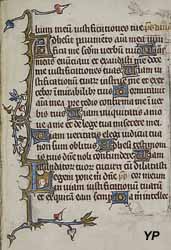 lium meum iustificationes tue
Adhesit pavimento aīa mea
me scdm verbum tuum
meas enuciavi et exaudisti me doce
me iustificationes tuas Viam
iustificationum tuarum instrue me
in mirabilibus tuis Dormitavit
aīa mea pre tedio confirma me in ver
bis tuis Viam iniquitatis amove
a me et de lege tua miserere mei
Viam veritatis elegi iudicia tua
non sum oblitus Adhesi testimoniis
tuis dñe noli me confundere Viam
mandatorum tuorum cucurri cum
Legem pone m dñe
viam iustificationum tuarum
et exquiram eam semp Da m intellec
YP